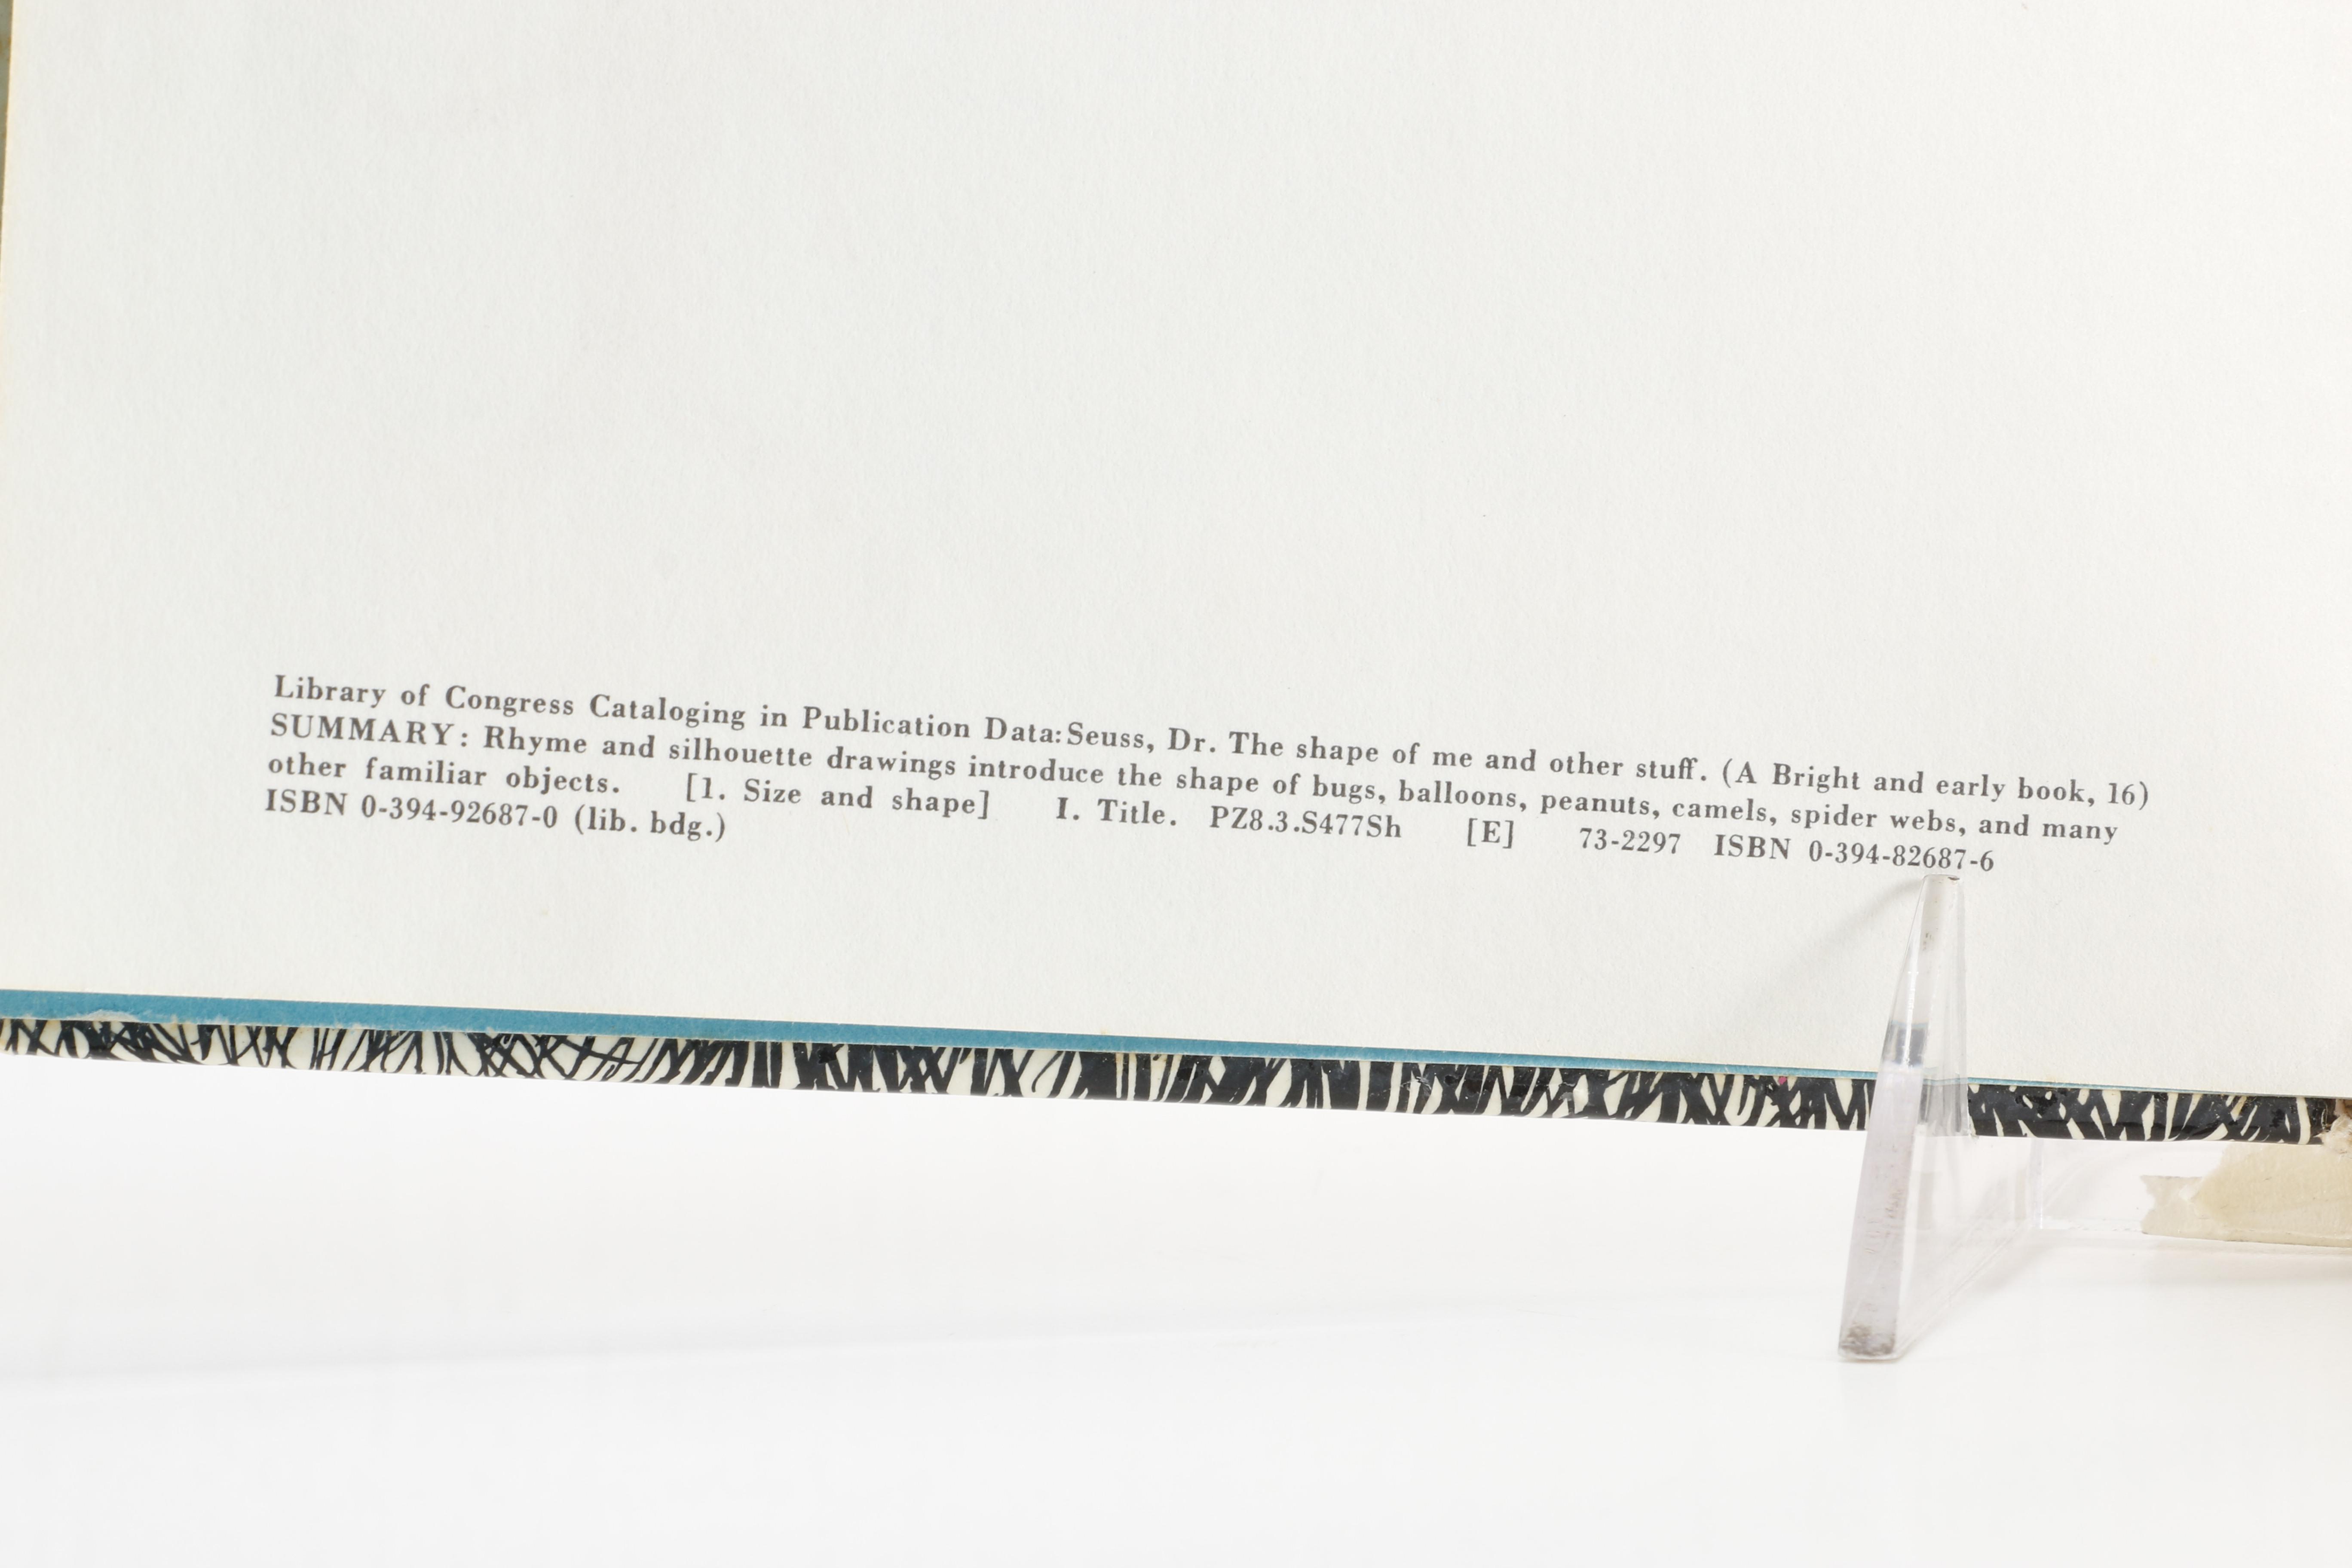 Library of Congress Cataloging in Publication Data:Seuss, Dr. The shape of me and other stuff. (A Bright and early book, 16)
SUMMARY: Rhyme and silhouette drawings introduce the shape of bugs, balloons, peanuts, camels, spider webs, and many
other familiar objects. [1. Size and shape] I. Title. PZ8.3.S477Sh [E] 73-2297 ISBN 0-394-82687-6
ISBN 0-394-92687-0 (lib. bdg.)